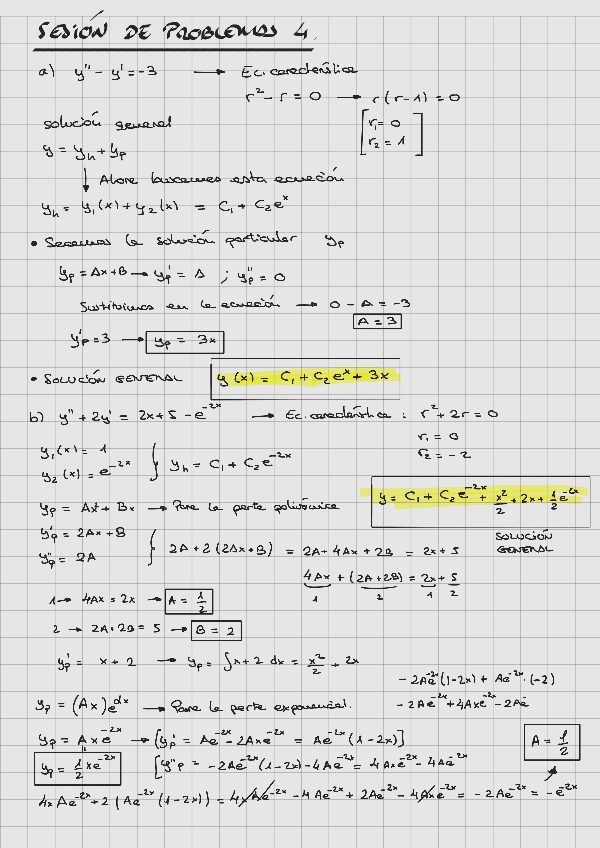 SESIÓN DE PROBLEMAS 4
a) y'' - y' = -3 → Ec. característica
r² - r = 0 → r(r-1) = 0
solución general
r₁ = 0
r₂ = 1
y = yₕ + yₚ
↓ Ahora buscamos esta ecuación
yₕ = y₁(x) + y₂(x) = C₁ + C₂eˣ
• Sacamos la solución particular yₚ
yₚ = Ax + B → yₚ' = A ; yₚ'' = 0
Sustituimos en la ecuación → 0 - A = -3
A = 3
yₚ' = 3 → yₚ = 3x
• SOLUCIÓN GENERAL y(x) = C₁ + C₂eˣ + 3x
b) y'' + 2y' = 2x + 5 - e⁻²ˣ → Ec. característica : r² + 2r = 0
r₁ = 0
r₂ = -2
y₁(x) = 1
y₂(x) = e⁻²ˣ } yₕ = C₁ + C₂e⁻²ˣ
y = C₁ + C₂e⁻²ˣ + x²/2 + 2x + 1/2 e⁻²ˣ
SOLUCIÓN
GENERAL
yₚ = Ax² + Bx → Para la parte polinómica
yₚ' = 2Ax + B
yₚ'' = 2A } 2A + 2(2Ax + B) = 2A + 4Ax + 2B = 2x + 5
4Ax + (2A + 2B) = 2x + 5
1 2 1 2
1 → 4Ax = 2x → A = 1/2
2 → 2A + 2B = 5 → B = 2
yₚ' = x + 2 → yₚ = ∫x + 2 dx = x²/2 + 2x
- 2Ae⁻²ˣ(1-2x) + Ae⁻²ˣ·(-2)
- 2Ae⁻²ˣ + 4Axe⁻²ˣ - 2Ae
yₚ = (Ax)e^αx → Para la parte exponencial.
yₚ = Axe⁻²ˣ → [yₚ' = Ae⁻²ˣ - 2Axe⁻²ˣ = Ae⁻²ˣ(1-2x)]
A = 1/2
yₚ = 1/2 xe⁻²ˣ
[y''p = -2Ae⁻²ˣ(1-2x) - 4Ae⁻²ˣ = 4Axe⁻²ˣ - 4Ae⁻²ˣ
4xAe⁻²ˣ + 2(Ae⁻²ˣ(1-2x)) = 4xAe⁻²ˣ - 4Ae⁻²ˣ + 2Ae⁻²ˣ - 4Axe⁻²ˣ = -2Ae⁻²ˣ = -e⁻²ˣ